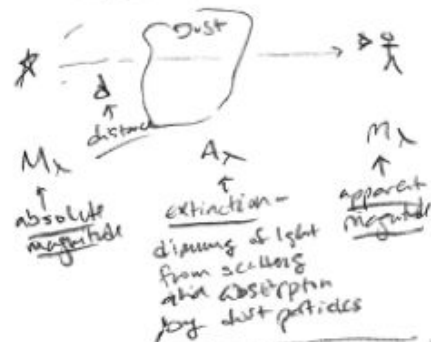 Dust
d
distance
Mλ Aλ mλ
absolute
magnitude
extinction -
dimming of light
from scattering
and absorption
by dust particles
apparent
magnitude